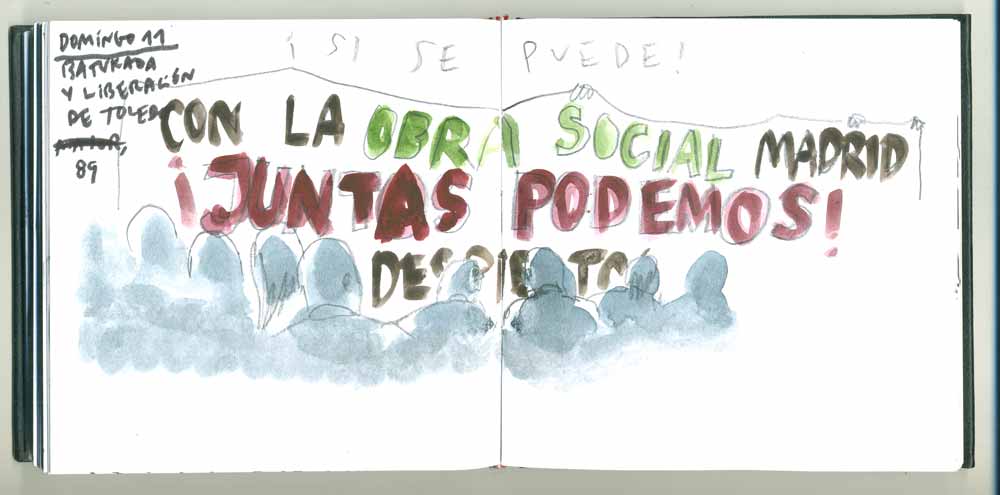 DOMINGO 11
BATUKADA
Y LIBERACIÓN
DE TOLEDO
89
¡SI SE PUEDE!
CON LA OBRA SOCIAL MADRID
¡JUNTAS PODEMOS!